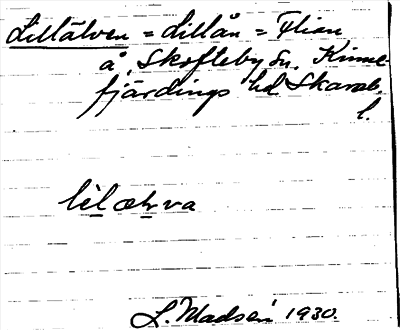 Lillälven = Lillån = Flian
å, Skofteby sn. Kinne-
fjärdings hd Skarab.
l.
L. Madsén 1930.